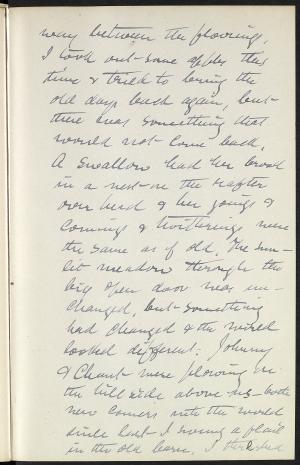 way between the flooring,
I took out some apples this
time & tried to bring the
old days back again, but
there was something that
would not come back.
A swallow had her brood
in a nest on the rafter
over head & her goings &
comings & twitterings were
the same as of old. The sun-
lit meadow through the
big open door was un-
changed, but something
had changed & the world
looked different. Johnny
& Chant were plowing on
the hill side above us - both
new comers into the world
since last I swung a flail
in the old barn. I threshed